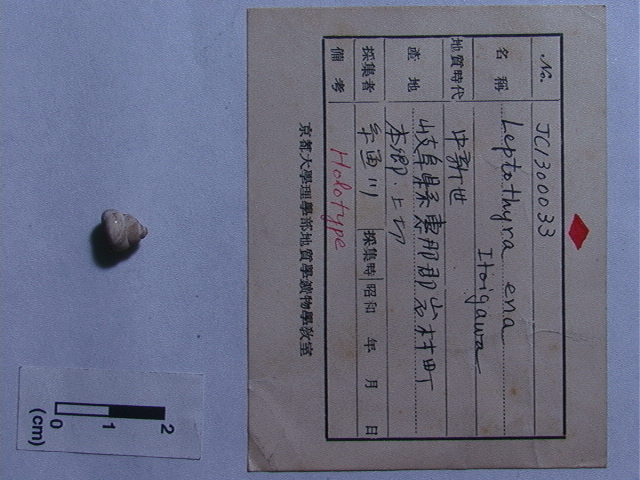 No. JC1300033
名稱 Leptothyra ena
Itoigawa
地質時代 中新世
産地 岐阜県恵那郡岩村町
本郷・上切
採集者 糸魚川 採集時 昭和 年 月 日
備考 Holotype
京都大學理學部地質學鑛物學教室
0 1 2
(cm)